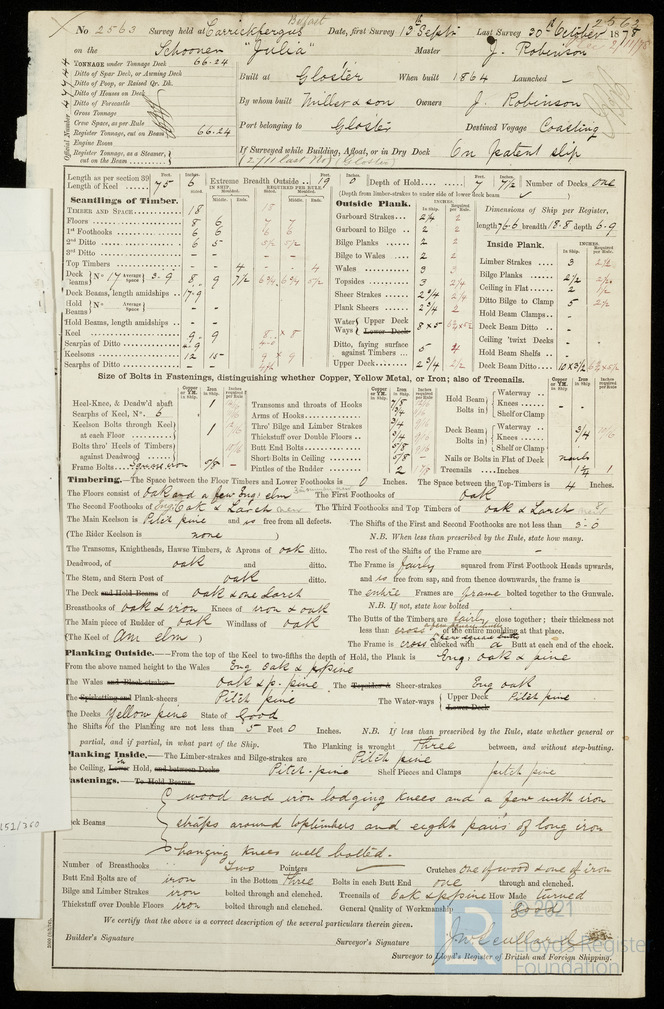 Belfast 2563
No 2563 Survey held at Carrickfergus Date, first Survey 13th Sept Last Survey 30th October 1878
on the Schooner "Julia" Master J. Robinson
TONNAGE under Tonnage Deck 66.24
Ditto of Spar Deck, or Awning Deck
Ditto of Poop, or Raised Qr. Dk.
Ditto of Houses on Deck
Ditto of Forecastle
Gross Tonnage
Crew Space, as per Rule
Register Tonnage, cut on Beam 66.24
Engine Room
Register Tonnage, as a Steamer, cut on the Beam
Official Number
Built at Gloster When built 1864 Launched –
By whom built Miller & son Owners J. Robinson
Port belonging to Gloster Destined Voyage Coasting
If Surveyed while Building, Afloat, or in Dry Dock On patent slip
Length as per section 39
Length of Keel 75 6 Extreme Breadth Outside 19 0 Depth of Hold 7 7½ Number of Decks one
(Depth from limber-strakes to under side of lower deck beam
Scantlings of Timber.
TIMBER AND SPACE 18 18
Floors 8 6 7 7
1st Foothooks 6 6 – –
2nd Ditto 6 5 5½ 5½
3rd Ditto – – – –
Top Timbers – 4 – 4
Deck Beams No 17 Average Space 3-9 8 9 7½
Deck Beams, length amidships 17-9
Hold Beams No – Average Space – – –
Hold Beams, length amidships – –
Keel 9 9 8 × 8
Scarphs of Ditto 4-9
Keelsons 12 15 9 × 9
Scarphs of Ditto –
Outside Plank.
Garboard Strakes 2¼ 2
Garboard to Bilge 2 2
Bilge Planks 2 2
Bilge to Wales 2 2
Wales 3 3
Topsides 3 2¼
Sheer Strakes 2¾ 2¼
Plank Sheers 2¾ 2
Water Ways Upper Deck Lower Deck 8 × 5
Ditto, faying surface against Timbers 5 4
Upper Deck 2¾ 2½
Dimensions of Ship per Register,
length 76.6 breadth 18.8 depth 6.9
Inside Plank.
Limber Strakes 3 2½
Bilge Planks 2½ 2½
Ceiling in Flat 2 1½
Ditto Bilge to Clamp 5 2½
Hold Beam Clamps - -
Deck Beam Ditto - -
Ceiling 'twixt Decks - -
Hold Beam Shelfs - -
Deck Beam Ditto 10 × 3½
Size of Bolts in Fastenings, distinguishing whether Copper, Yellow Metal, or Iron; also of Treenails.
Heel-Knee, & Deadw'd abaft 1
Scarphs of Keel, No. 6
Keelson Bolts through Keel at each Floor 1
Bolts thro' Heels of Timbers against Deadwood
Frame Bolts 7/8 –
Transoms and throats of Hooks 7/8
Arms of Hooks ¾
Thro' Bilge and Limber Strakes ¾
Thickstuff over Double Floors ¾
Butt End Bolts 5/8
Short Bolts in Ceiling 5/8
Pintles of the Rudder 2
Hold Beam Bolts in Waterway – –
Knees – –
Shelf or Clamp
Deck Beam Bolts in Waterway
Knees ¾
Shelf or Clamp
Nails or Bolts in Flat of Deck nails
Treenails Inches 1¼ 1
Timbering.—The Space between the Floor Timbers and Lower Foothooks is 0 Inches. The Space between the Top-Timbers is 4 Inches.
The Floors consist of oak and a few Eng: elm The First Foothooks of oak
The Second Foothooks of Eng: Oak & Larch The Third Foothooks and Top Timbers of oak & Larch
The Main Keelson is Pitch pine and is free from all defects. The Shifts of the First and Second Foothooks are not less than 3-0
(The Rider Keelson is none ) N.B. When less than prescribed by the Rule, state how many.
The Transoms, Knightheads, Hawse Timbers, & Aprons of oak ditto. The rest of the Shifts of the Frame are –
Deadwood, of oak and ditto. The Frame is fairly squared from First Foothook Heads upwards,
The Stem, and Stern Post of oak ditto. and is free from sap, and from thence downwards, the frame is
The Deck and Hold Beams of oak & one Larch The entire Frames are frame bolted together to the Gunwale.
Breasthooks of oak & iron Knees of iron & oak N.B. If not, state how bolted
The Main piece of Rudder of oak Windlass of oak The Butts of the Timbers are fairly close together; their thickness not
less than cross of the entire moulding at that place.
(The Keel of Am elm ) The Frame is cross chocked with a Butt at each end of the chock.
Planking Outside.—From the top of the Keel to two-fifths the depth of Hold, the Plank is Eng: oak & pine
From the above named height to the Wales Eng Oak & p pine
The Wales and Black-strakes Oak & p. pine The Topsides & Sheer-strakes Eng oak
The Spirketting and Plank-sheers Pitch pine The Water-ways Upper Deck Lower Deck Pitch pine
The Decks Yellow pine State of Good
The Shifts of the Planking are not less than 5 Feet 0 Inches. N.B. If less than prescribed by the Rule, state whether general or
partial, and if partial, in what part of the Ship. The Planking is wrought Three between, and without step-butting.
Planking Inside.—The Limber-strakes and Bilge-strakes are Pitch pine
The Ceiling, Lower Hold, and between Decks Pitch-pine Shelf Pieces and Clamps pitch pine
Fastenings.—To Hold Beams
Deck Beams wood and iron lodging knees and a few with iron
straps around toptimbers and eight pairs of long iron
hanging knees well bolted.
Number of Breasthooks Two Pointers Crutches one of wood & one of iron
Butt End Bolts are of iron in the Bottom Three Bolts in each Butt End one through and clenched.
Bilge and Limber Strakes iron bolted through and clenched. Treenails of Oak & p pine How Made turned
Thickstuff over Double Floors iron bolted through and clenched. General Quality of Workmanship Good
We certify that the above is a correct description of the several particulars therein given.
Builder's Signature Surveyor's Signature
Surveyor to Lloyd's Register of British and Foreign Shipping.
152/360
LR
© 2021
Lloyd's Register
Foundation